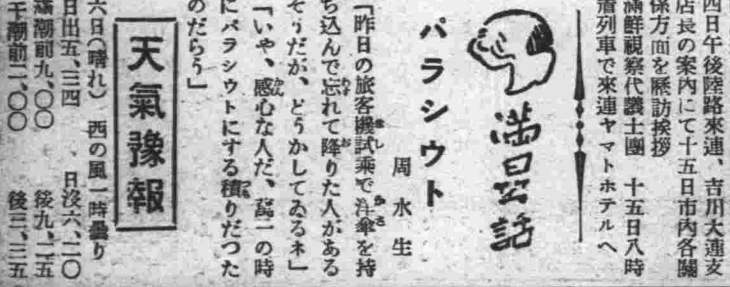 四日午後陸路來連、吉川大連支
店長の案内にて十五日市內各關
係方面を歷訪挨拶
滿鮮視察代議士團 十五日八時
着列車で來連ヤマトホテルへ
滿日公話
パラシウト
周水生
「昨日の旅客機試乘で洋傘を持
ち込んで忘れて降りた人がある
そうだが、どうかしてゐるネ」
「いや、感心な人だ、萬一の時
にパラシウトにする積りだつた
のだらう」
天氣豫報
六日(晴れ) 西の風一時曇り
日出五、三四 日沒六、二〇
滿潮前九、〇〇 後九、二五
干潮前二、〇〇 後三、三五